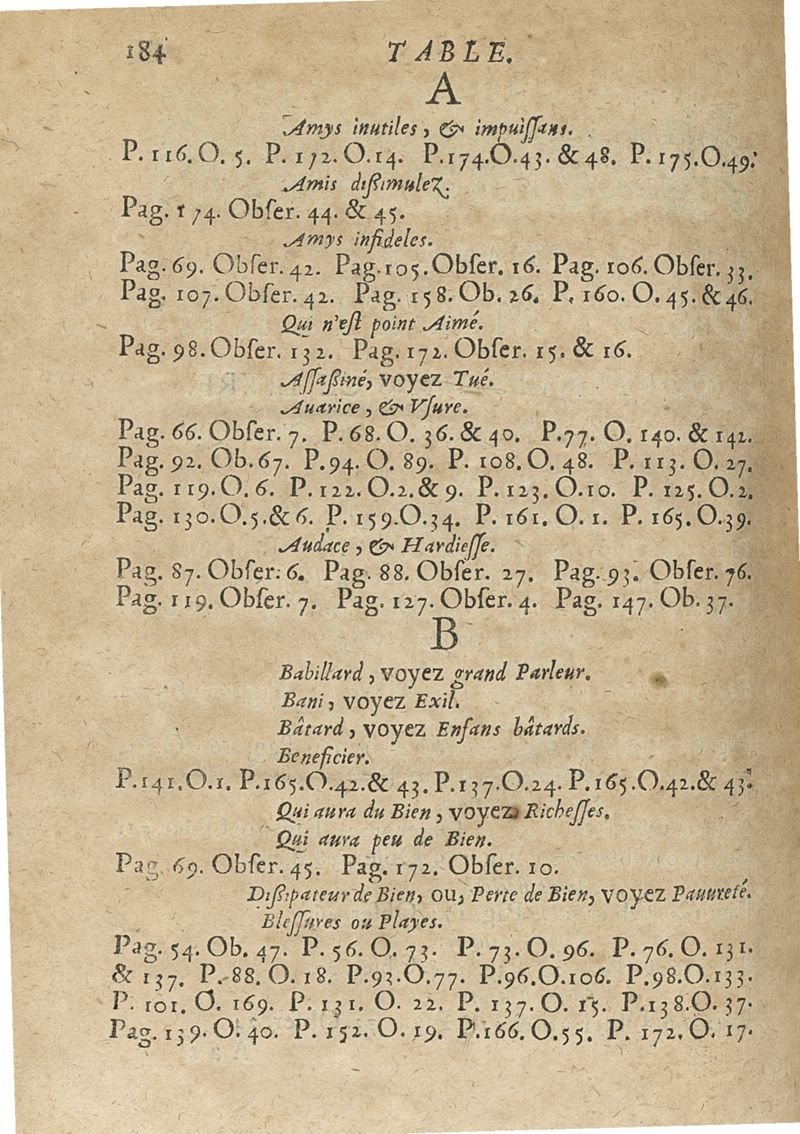 184 TABLE.
A
Amys inutiles, & impuiſſans.
P. 116. O. 5. P. 172. O. 14. P. 174. O. 43. & 48. P. 175. O. 49.
Amis diſſimulez.
Pag. 174. Obſer. 44. & 45.
Amys infideles.
Pag. 69. Obſer. 42. Pag. 105. Obſer. 16. Pag. 106. Obſer. 33.
Pag. 107. Obſer. 42. Pag. 158. Ob. 26. P. 160. O. 45. & 46.
Qui n'eſt point Aimé.
Pag. 98. Obſer. 132. Pag. 172. Obſer. 15. & 16.
Aſſaſſiné, voyez Tué.
Auarice, & Vſure.
Pag. 66. Obſer. 7. P. 68. O. 36. & 40. P. 77. O. 140. & 142.
Pag. 92. Ob. 67. P. 94. O. 89. P. 108. O. 48. P. 113. O. 27.
Pag. 119. O. 6. P. 122. O. 2. & 9. P. 123. O. 10. P. 125. O. 2.
Pag. 130. O. 5. & 6. P. 159. O. 34. P. 161. O. 1. P. 165. O. 39.
Audace, & Hardieſſe.
Pag. 87. Obſer. 6. Pag. 88. Obſer. 27. Pag. 93. Obſer. 76.
Pag. 119. Obſer. 7. Pag. 127. Obſer. 4. Pag. 147. Ob. 37.
B
Babillard, voyez grand Parleur.
Bani, voyez Exil.
Bâtard, voyez Enfans bâtards.
Beneficier.
P. 141. O. 1. P. 165. O. 42. & 43. P. 137. O. 24. P. 165. O. 42. & 43.
Qui aura du Bien, voyez Richeſſes.
Qui aura peu de Bien.
Pag. 69. Obſer. 45. Pag. 172. Obſer. 10.
Diſſipateur de Bien, ou, Perte de Bien, voyez Pauureté.
Bleſſures ou Playes.
Pag. 54. Ob. 47. P. 56. O. 73. P. 73. O. 96. P. 76. O. 131.
& 137. P. 88. O. 18. P. 93. O. 77. P. 96. O. 106. P. 98. O. 133.
P. 101. O. 169. P. 131. O. 22. P. 137. O. 15. P. 138. O. 37.
Pag. 139. O. 40. P. 152. O. 19. P. 166. O. 55. P. 172. O. 17.